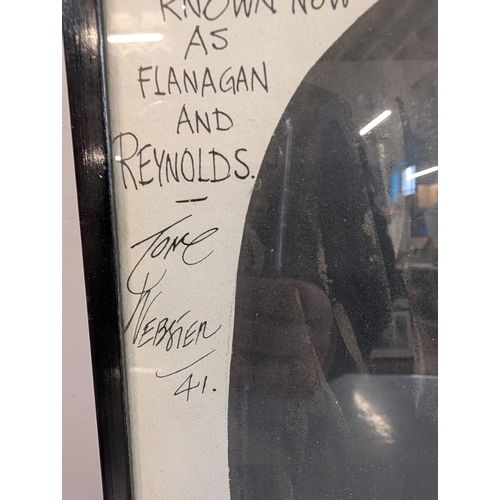 KNOWN NOW
AS
FLANAGAN
AND
REYNOLDS.
Tom
Webster
41.